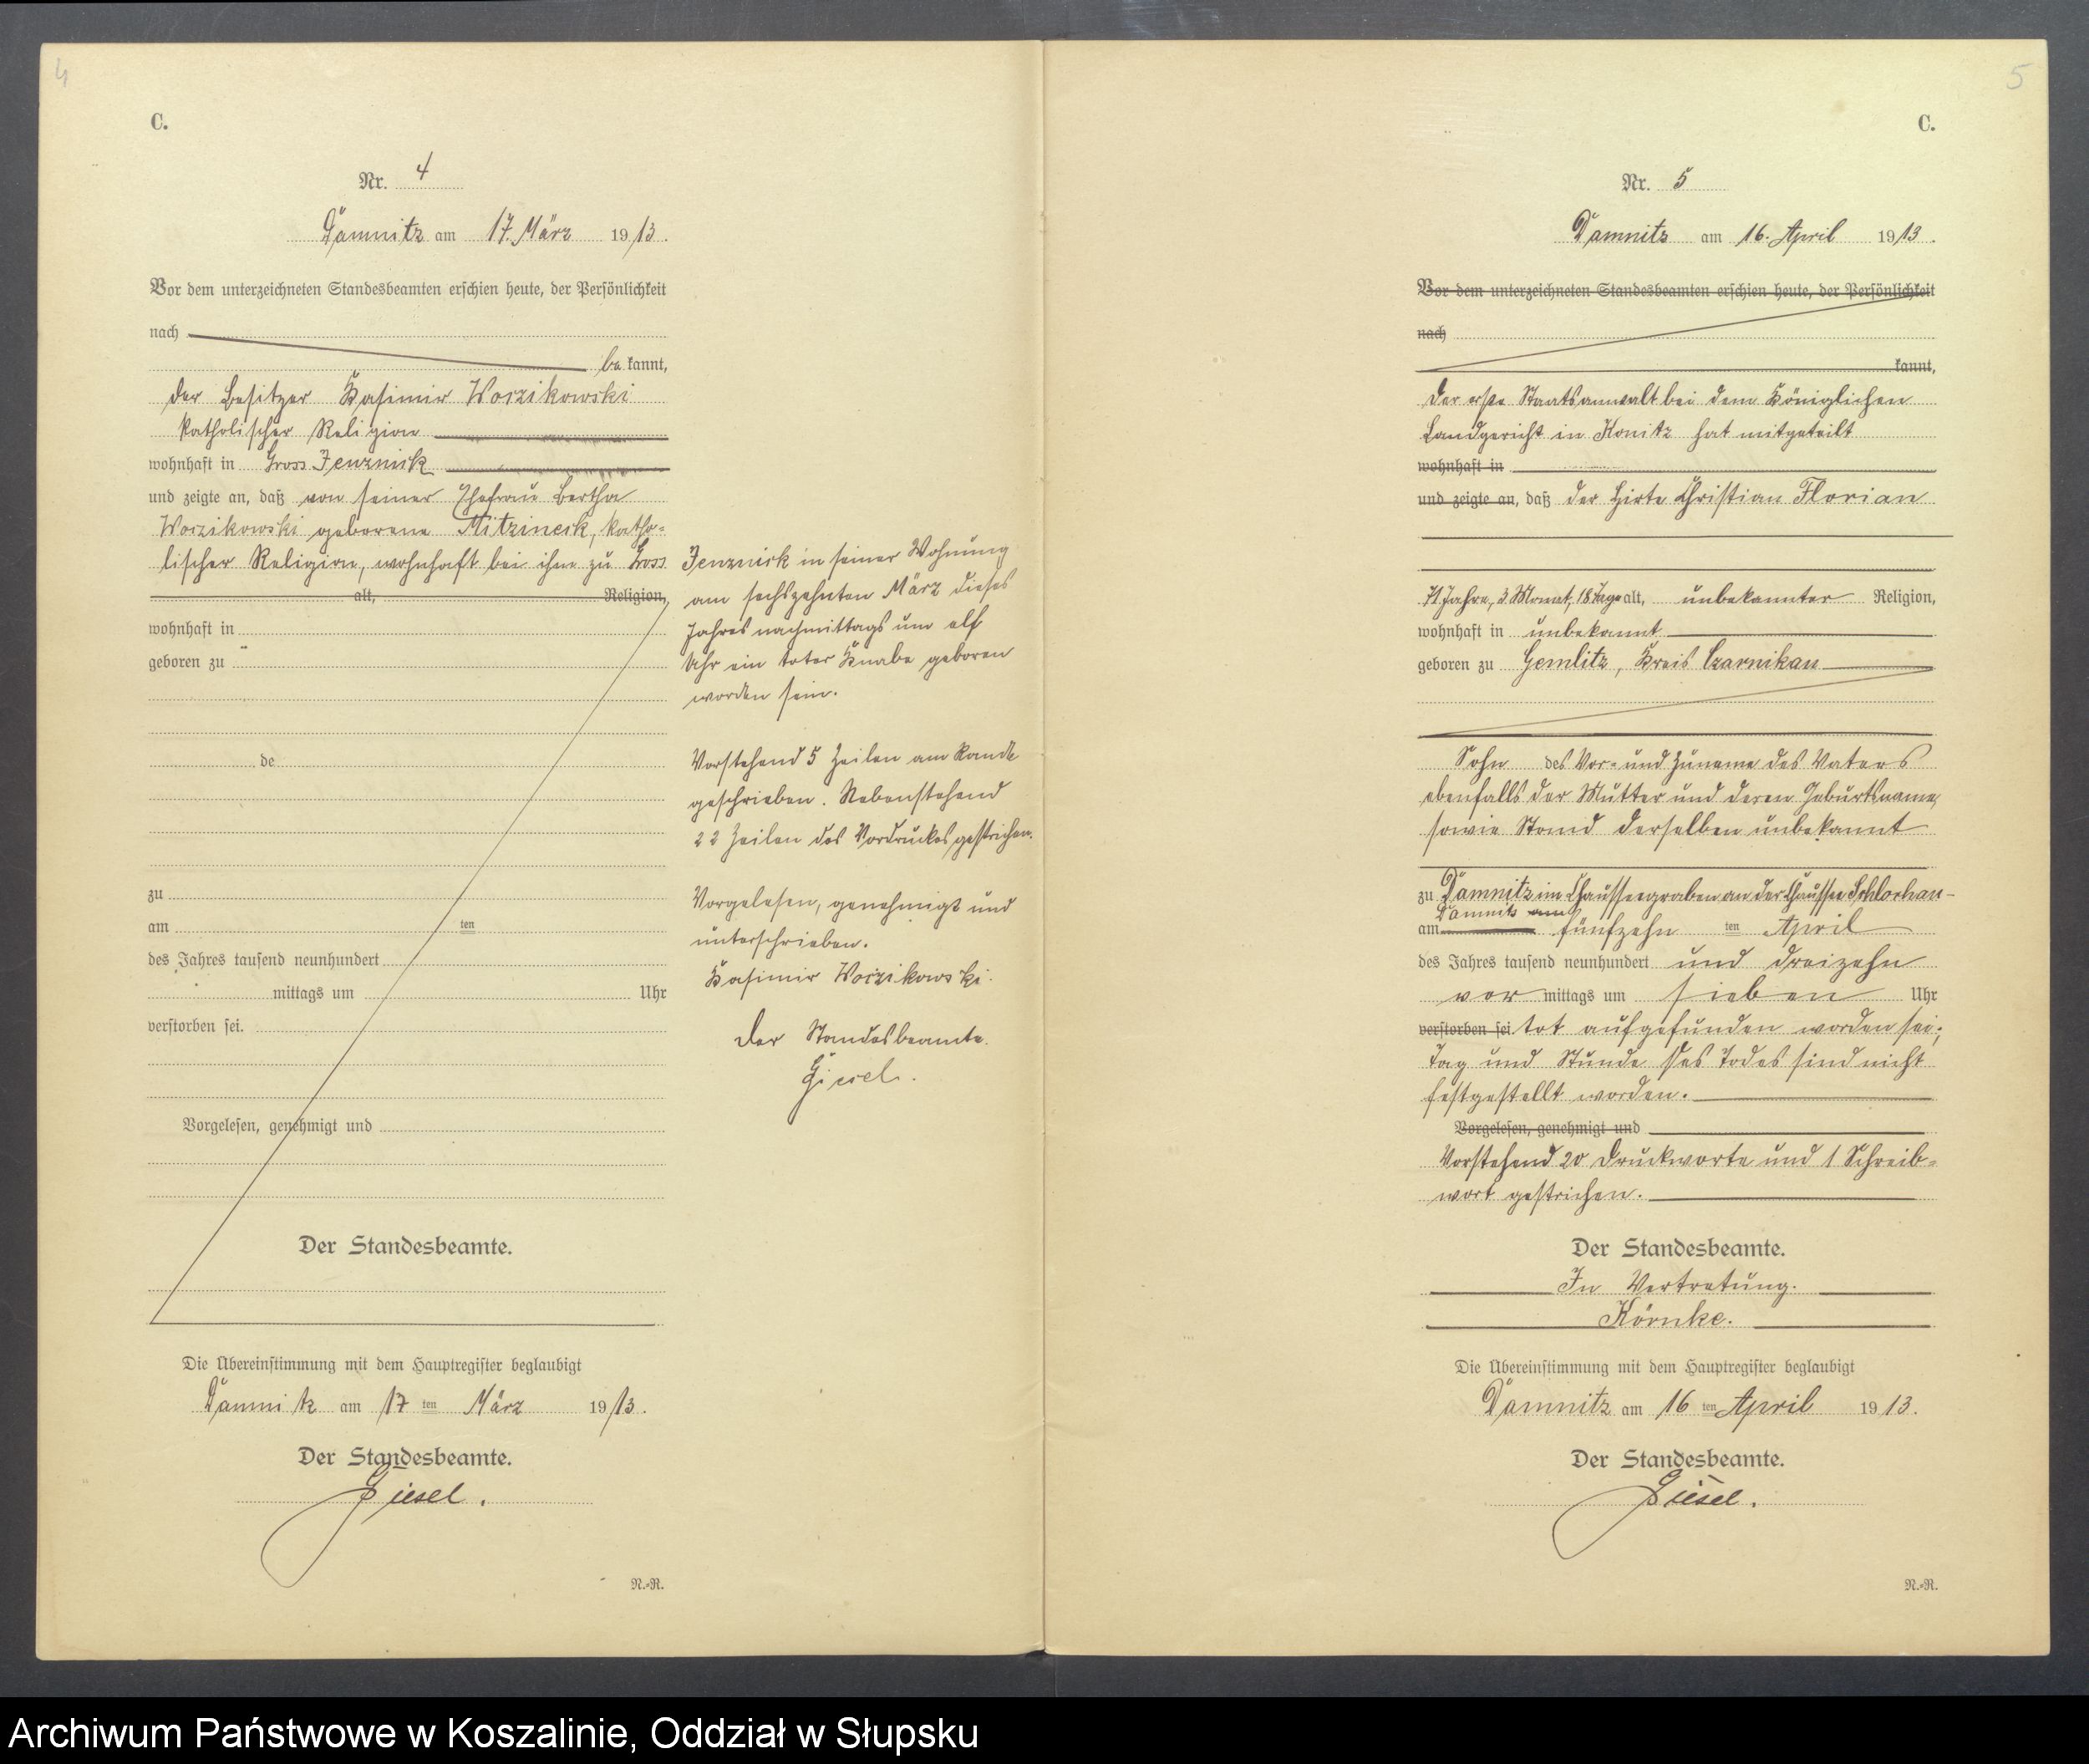 4
C.
Nr. 4
Damnitz am 17. März 1913.
Vor dem unterzeichneten Standesbeamten erschien heute, der Persönlichkeit
nach
be kannt,
der Besitzer Kasimir Worzikowski
katholischer Religion
wohnhaft in Gross Jenznick
und zeigte an, daß von seiner Ehefrau Bertha
Worzikowski geborene Mitzineck, katho-
lischer Religion, wohnhaft bei ihm zu Gross
alt, Religion,
wohnhaft in
geboren zu
de
zu
am ten
des Jahres tausend neunhundert
mittags um Uhr
verstorben sei.
Vorgelesen, genehmigt und
Der Standesbeamte.
Jenznick in seiner Wohnung
am sechszehnten März dieses
Jahres nachmittags um elf
Uhr ein toter Knabe geboren
worden sein.
Vorstehend 5 Zeilen am Rande
geschrieben. Nebenstehend
22 Zeilen des Vordruckes gestrichen.
Vorgelesen, genehmigt und
unterschrieben.
Kasimir Worzikowski.
Der Standesbeamte.
Giesel.
Die Übereinstimmung mit dem Hauptregister beglaubigt
Damnitz am 17 ten März 1913.
Der Standesbeamte.
Giesel.
N.-R.
5
C.
Nr. 5
Damnitz am 16. April 1913.
Vor dem unterzeichneten Standesbeamten erschien heute, der Persönlichkeit
nach
kannt,
der erste Staatsanwalt bei dem Königlichen
Landgericht in Konitz hat mitgeteilt
wohnhaft in
und zeigte an, daß der Hirte Christian Florian
71 Jahre, 3 Monat, 18 Tage alt, unbekannter Religion,
wohnhaft in unbekannt
geboren zu Gemlitz, Kreis Czarnikau
Sohn des Vor- und Zuname des Vaters
ebenfalls der Mutter und deren Geburtsname,
sowie Stand derselben unbekannt
zu Damnitz im Chausseegraben an der Chaussee Schlochau-
Damnitz am
am fünfzehn ten April
des Jahres tausend neunhundert und dreizehn
vor mittags um sieben Uhr
verstorben sei tot aufgefunden worden sei;
Tag und Stunde des Todes sind nicht
festgestellt worden.
Vorgelesen, genehmigt und
Vorstehend 20 Druckworte und 1 Schreib-
wort gestrichen.
Der Standesbeamte.
In Vertretung.
Körnke.
Die Übereinstimmung mit dem Hauptregister beglaubigt
Damnitz am 16 ten April 1913.
Der Standesbeamte.
Giesel.
N.-R.
Archiwum Państwowe w Koszalinie, Oddział w Słupsku